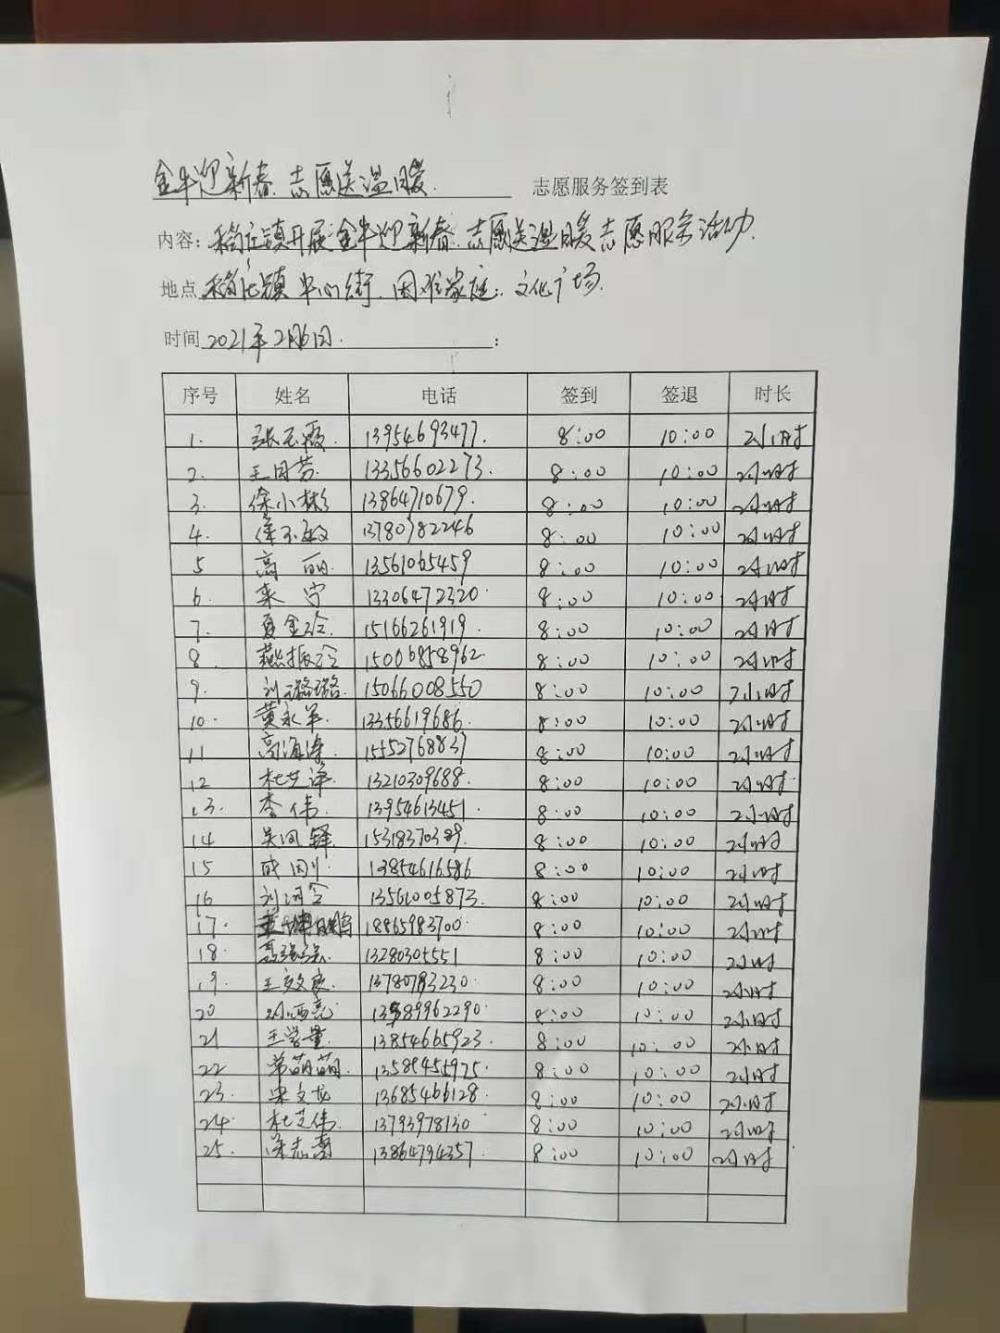 金牛迎新春.志愿送温暖. 志愿服务签到表
内容: 稻庄镇开展金牛迎新春.志愿送温暖志愿服务活动.
地点 稻庄镇中心街.困难家庭.文化广场.
时间 2021年2月6日. :
序号 姓名 电话 签到 签退 时长
1. 张玉霞. 13954693477. 8:00 10:00 2小时
2. 王国芳. 13356602273. 8:00 10:00 2小时
3. 徐小彬 13864710679. 8:00 10:00 2小时
4. 13780782246 8:00 10:00 2小时
5 高丽 13561065459 8:00 10:00 2小时
6. 宁 13306472320. 8:00 10:00 2小时
7. 15166261919. 8:00 10:00 2小时
8. 燕振 15006858962 8:00 10:00 2小时
9. 刘璐璐. 15066008550 8:00 10:00 2小时
10. 黄永军. 13356619686. 8:00 10:00 2小时
11 高海涛. 15552768837 8:00 10:00 2小时
12 杜芝泽. 13210309688. 8:00 10:00 2小时
13. 李伟 13954613451 8:00 10:00 2小时
14 吴 15318370389. 8:00 10:00 2小时
15 成刚 13854616586 8:00 10:00 2小时
16 刘河 13561005873. 8:00 10:00 2小时
17. 18865983700. 8:00 10:00 2小时
18. 聂强强. 13280305551 8:00 10:00 2小时
19. 王效良. 13780783230. 8:00 10:00 2小时
20 13589962290. 8:00 10:00 2小时
21 王学量. 13854665923. 8:00 10:00 2小时
22 常萌萌. 13589455975. 8:00 10:00 2小时
23. 宋文龙 13685466128 8:00 10:00 2小时
24. 杜芝伟. 13793978130 8:00 10:00 2小时
25. 徐志 13864794357. 8:00 10:00 2小时